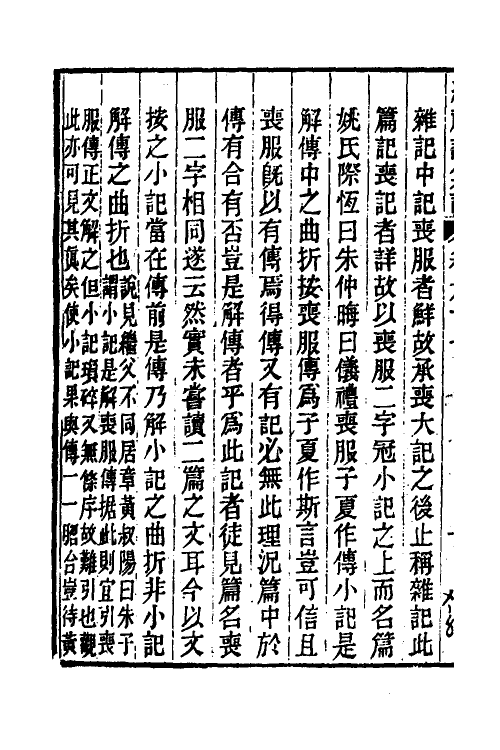 雜記中記喪服者鮮故承喪大記之後止稱雜記此
篇記喪記者詳故以喪服二字冠小記之上而名篇
姚氏際恆曰朱仲晦曰儀禮喪服子夏作傳小記是
解傳中之曲折按喪服傳為子夏作斯言豈可信且
喪服旣以有傳焉得傳又有記必無此理況篇中於
傳有合有否豈是解傳者乎爲此記者徒見篇名喪
服二字相同遂云然實未嘗讀二篇之文耳今以文
按之小記當在傳前是傳乃解小記之曲折非小記
解傳之曲折也說見繼父不同居章黃叔陽曰朱子
謂小記是解喪服傳据此則宜引喪
服傳正文解之但小記瑣碎又無條序故難引也觀
此亦可見其眞矣使小記果與傳一一脗合豈待黃